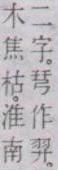 二字。𢏗作羿。
木焦枯。淮南